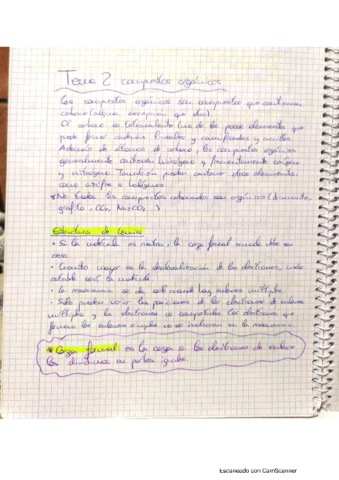 Tema 2: compuestos orgánicos
Los compuestos orgánicos son compuestos que contienen
carbono (alguna excepción que otra).
El carbono es tetravalente (uno de los pocos elementos que
puede formar cadenas lineales y ramificadas y anillos.
Además de átomos de carbono, los compuestos orgánicos
generalmente contienen hidrógeno y frecuentemente oxígeno
y nitrógeno. También pueden contener otros elementos,
como azufre o halógenos.
*No todos los compuestos carbonados son orgánicos (diamante,
grafito, CO2, Na2CO3...)
Estructura de Lewis
· Si la molécula es neutra, la carga formal sumada debe ser
cero
· Cuanto mayor es la deslocalización de los electrones, más
estable será la molécula
· La resonancia se da siempre que hay enlaces múltiples.
· Solo pueden variar las posiciones de los electrones de enlaces
múltiples y los electrones no compartidos. Los electrones que
forman los enlaces simples no se incluyen en la resonancia.
*Carga formal: es la carga si los electrones de enlace
los dividimos en partes iguales.
Escaneado con CamScanner